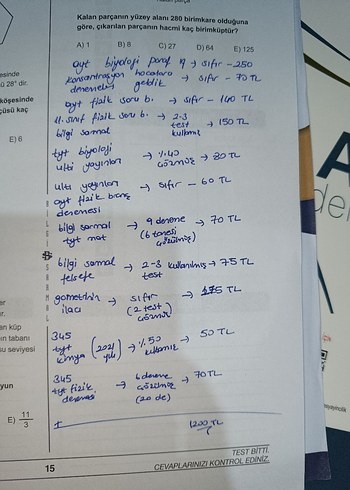 Kalan parçanın yüzey alanı 280 birimkare olduğuna
göre, çıkarılan parçanın hacmi kaç birimküptür?
A) 1 B) 8 C) 27 D) 64 E) 125
ayt biyoloji paraf 9 → sıfır - 250
konsantrasyon hocalara → sıfır - 70 TL
denemeleri geldik
ayt fizik soru b. → sıfır - 140 TL
11. sınıf fizik soru b. → 2-3 test kullanılmış → 150 TL
bilgi sarmal
tyt biyoloji → %40 çözülmüş → 80 TL
ulti yayınları
ulti yayınları → sıfır - 60 TL
ayt fizik branş
denemesi
bilgi sarmal → 9 deneme → 70 TL
tyt mat (6 tanesi çözülmüş)
bilgi sarmal → 2-3 kullanılmış → 75 TL
felsefe test
geometrinin → sıfır → 175 TL
ilacı (2 test çözülmüş)
345
tyt (2021 yılı) → %50 kullanılmış → 50 TL
kimya
345 → 6 deneme → 70 TL
tyt fizik çözülmüş
denemesi (20 de)
1200 TL
TEST BİTTİ.
CEVAPLARINIZI KONTROL EDİNİZ.
15
esinde
ü 28° dir.
köşesinde
çüsü kaç
E) 6
er
ır.
en küp
ın tabanı
su seviyesi
yun
E) 11/3
BİLGİ SARMAL
A
den